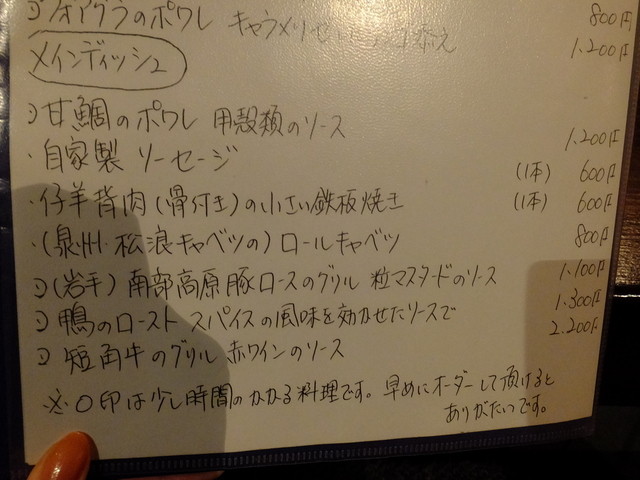 フォアグラのポワレ キャラメリゼ 添え 800円
1.200円
メインディッシュ
○甘鯛のポワレ 甲殻類のソース 1.200円
・自家製 ソーセージ (1本) 600円
・仔羊背肉(骨付き)の小さい鉄板焼き (1本) 600円
・(泉州・松浪キャベツの)ロールキャベツ 800円
○(岩手)南部高原豚ロースのグリル 粒マスタードのソース 1.100円
○鴨のロースト スパイスの風味を効かせたソースで 1.300円
○短角牛のグリル 赤ワインのソース 2.200円
※○印は少し時間のかかる料理です。早めにオーダーして頂けると
ありがたいです。